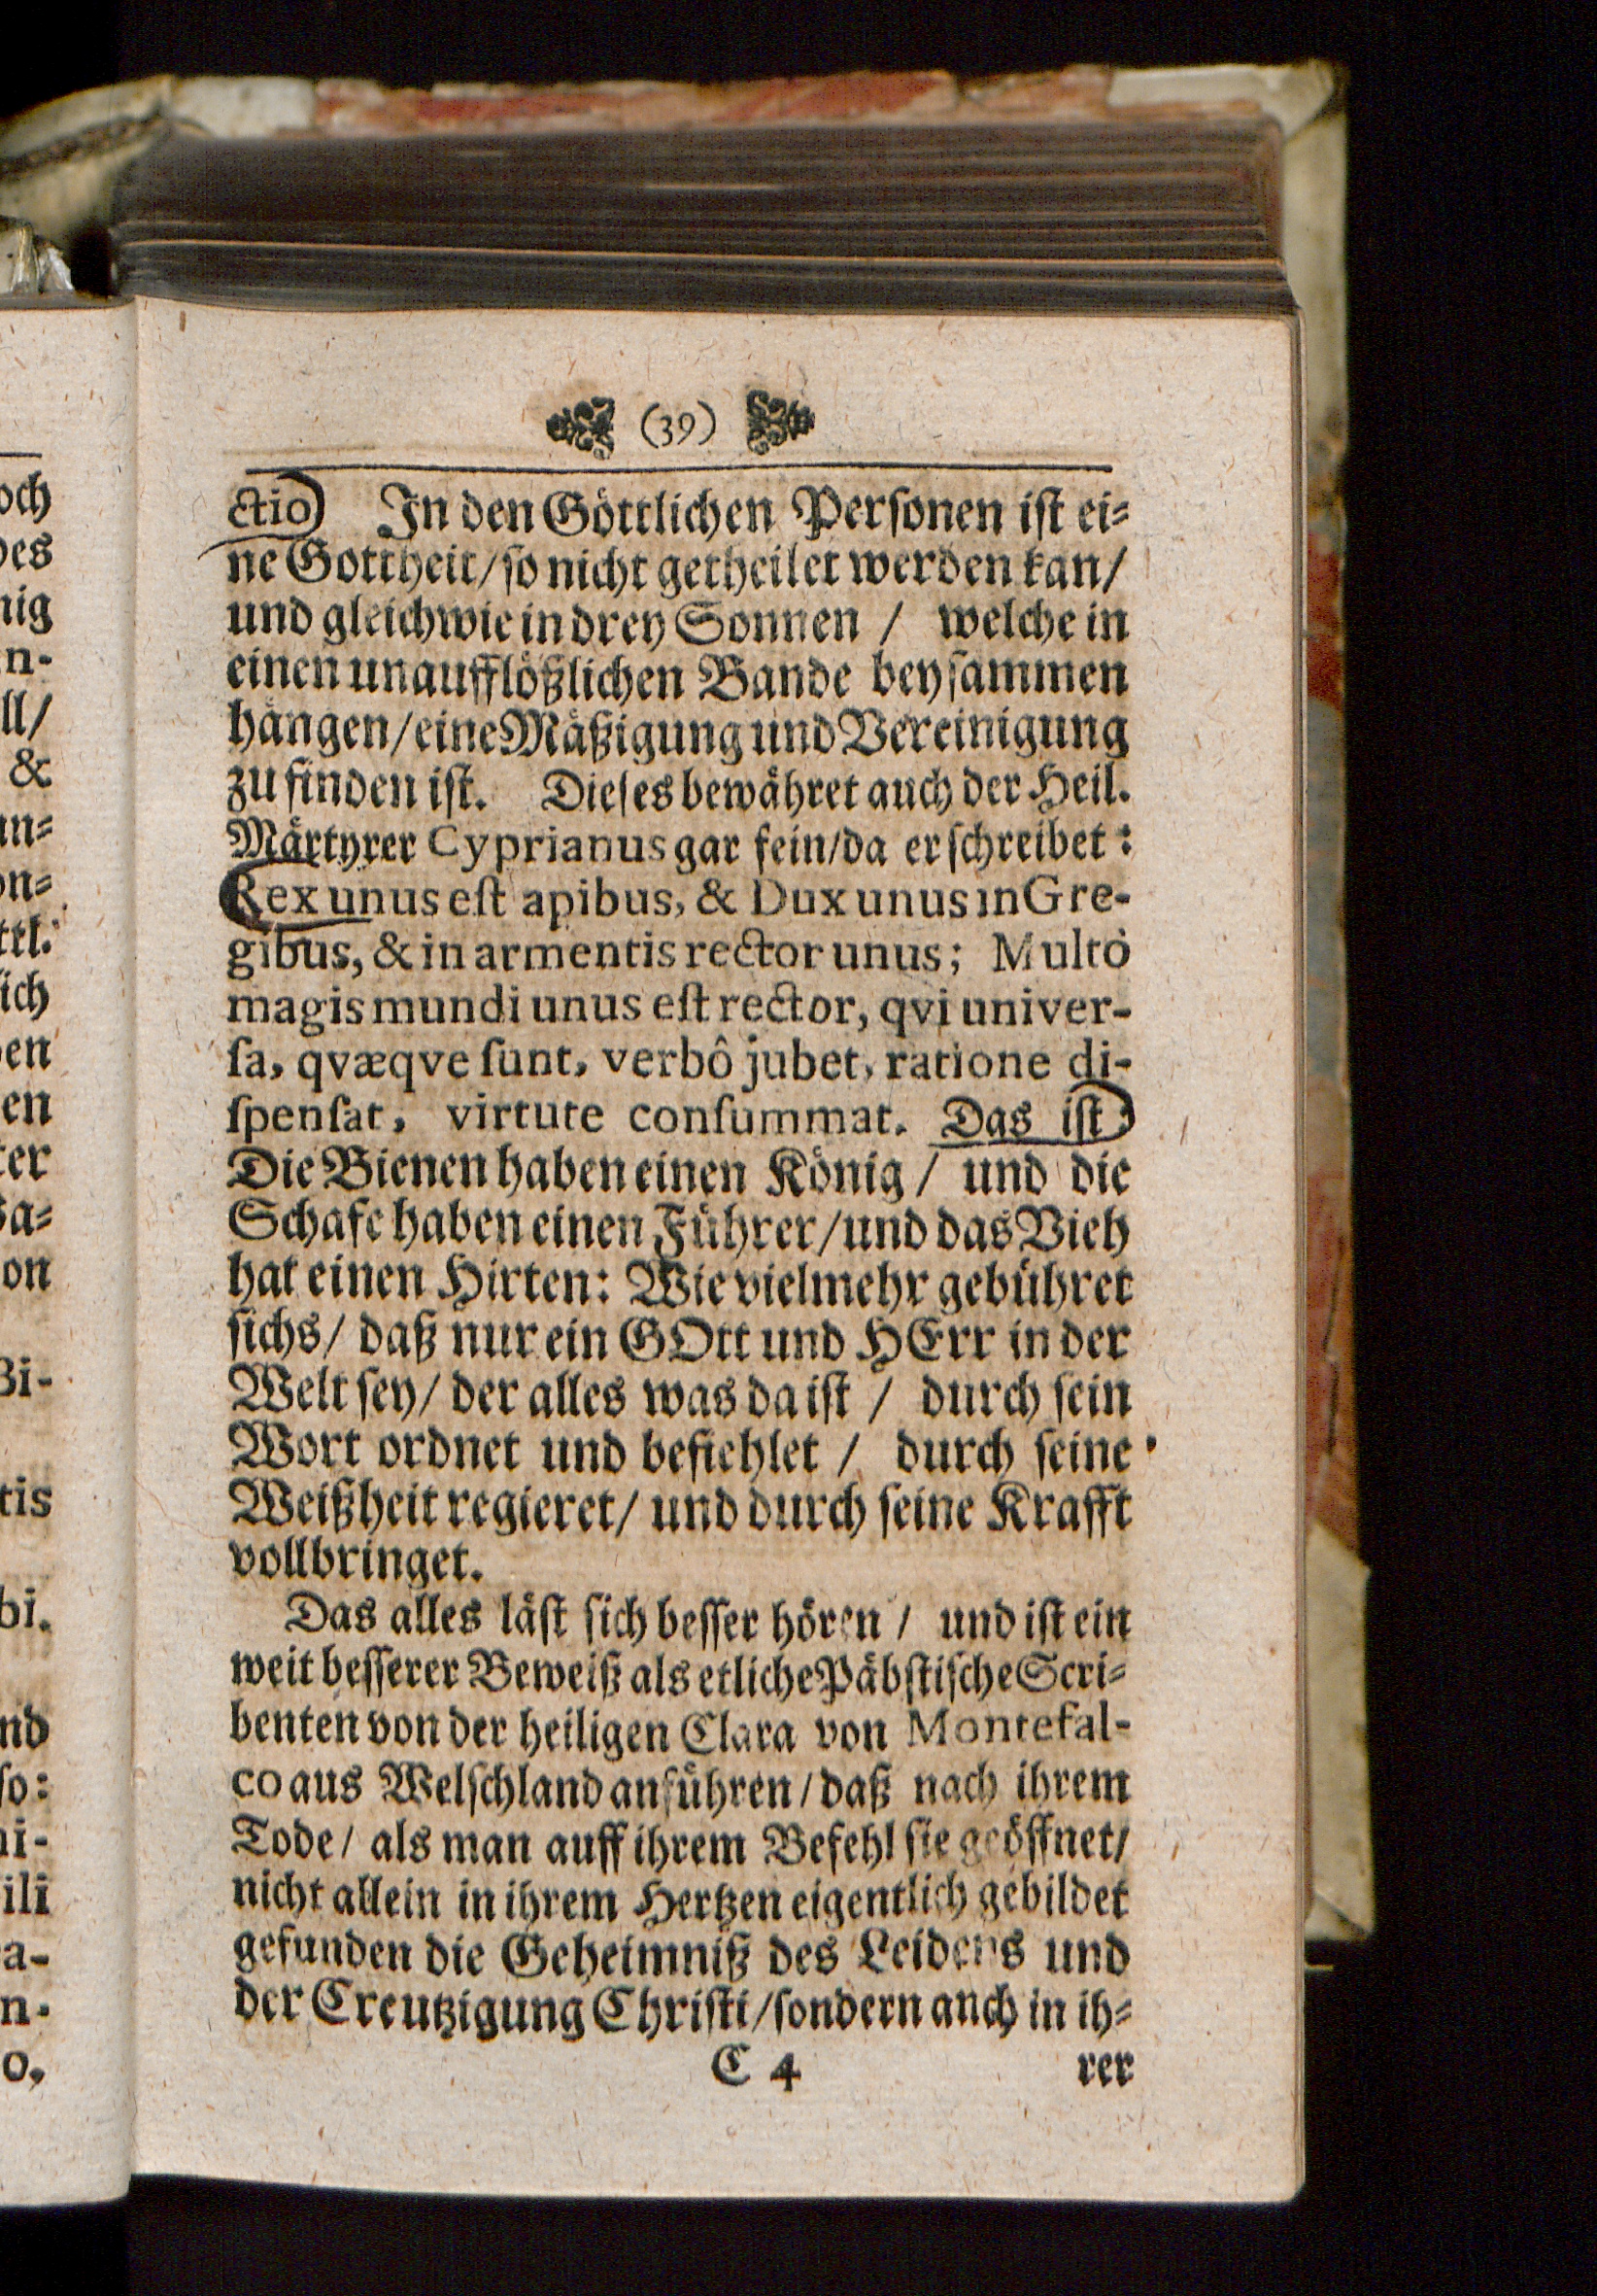 (39)
ctio) In den Göttlichen Personen ist ei-
ne Gottheit/ so nicht getheilet werden kan/
und gleichwie in drey Sonnen / welche in
einen unaufflößlichen Bande beysammen
hängen/ eine Mäßigung und Vereinigung
zu finden ist. Dieses bewähret auch der Heil.
Märtyrer Cyprianus gar fein/ da er schreibet:
Rex unus est apibus, & Dux unus in Gre-
gibus, & in armentis rector unus; Multò
magis mundi unus est rector, qvi univer-
sa, qvæqve sunt, verbô jubet, ratione di-
spensat, virtute consummat. Das ist:
Die Bienen haben einen König / und die
Schafe haben einen Führer/ und das Vieh
hat einen Hirten: Wie vielmehr gebühret
sichs/ daß nur ein GOtt und HErr in der
Welt sey/ der alles was da ist / durch sein
Wort ordnet und befiehlet / durch seine
Weißheit regieret/ und durch seine Krafft
vollbringet.
Das alles läst sich besser hören / und ist ein
weit besserer Beweiß als etliche Päbstische Scri-
benten von der heiligen Clara von Montefal-
co aus Welschland anführen/ daß nach ihrem
Tode/ als man auff ihrem Befehl sie geöffnet/
nicht allein in ihrem Hertzen eigentlich gebildet
gefunden die Geheimniß des Leidens und
der Creutzigung Christi/ sondern auch in ih-
C 4 rer